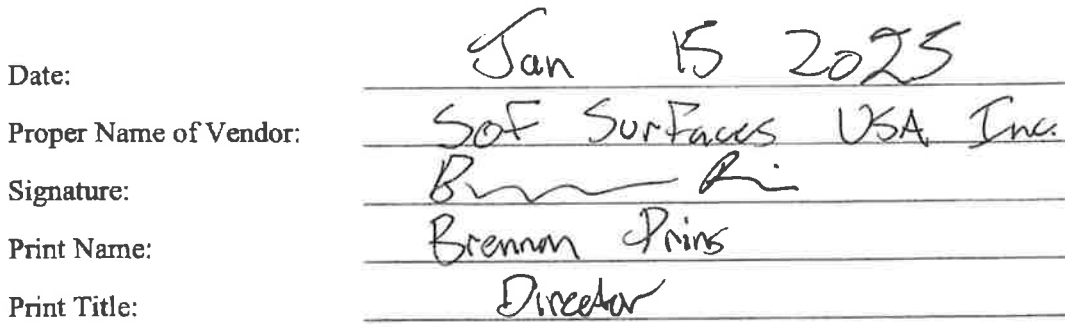 Date: Jan 15 2025
Proper Name of Vendor: SofSurfaces USA Inc.
Signature:
Print Name: Brennan Prins
Print Title: Director